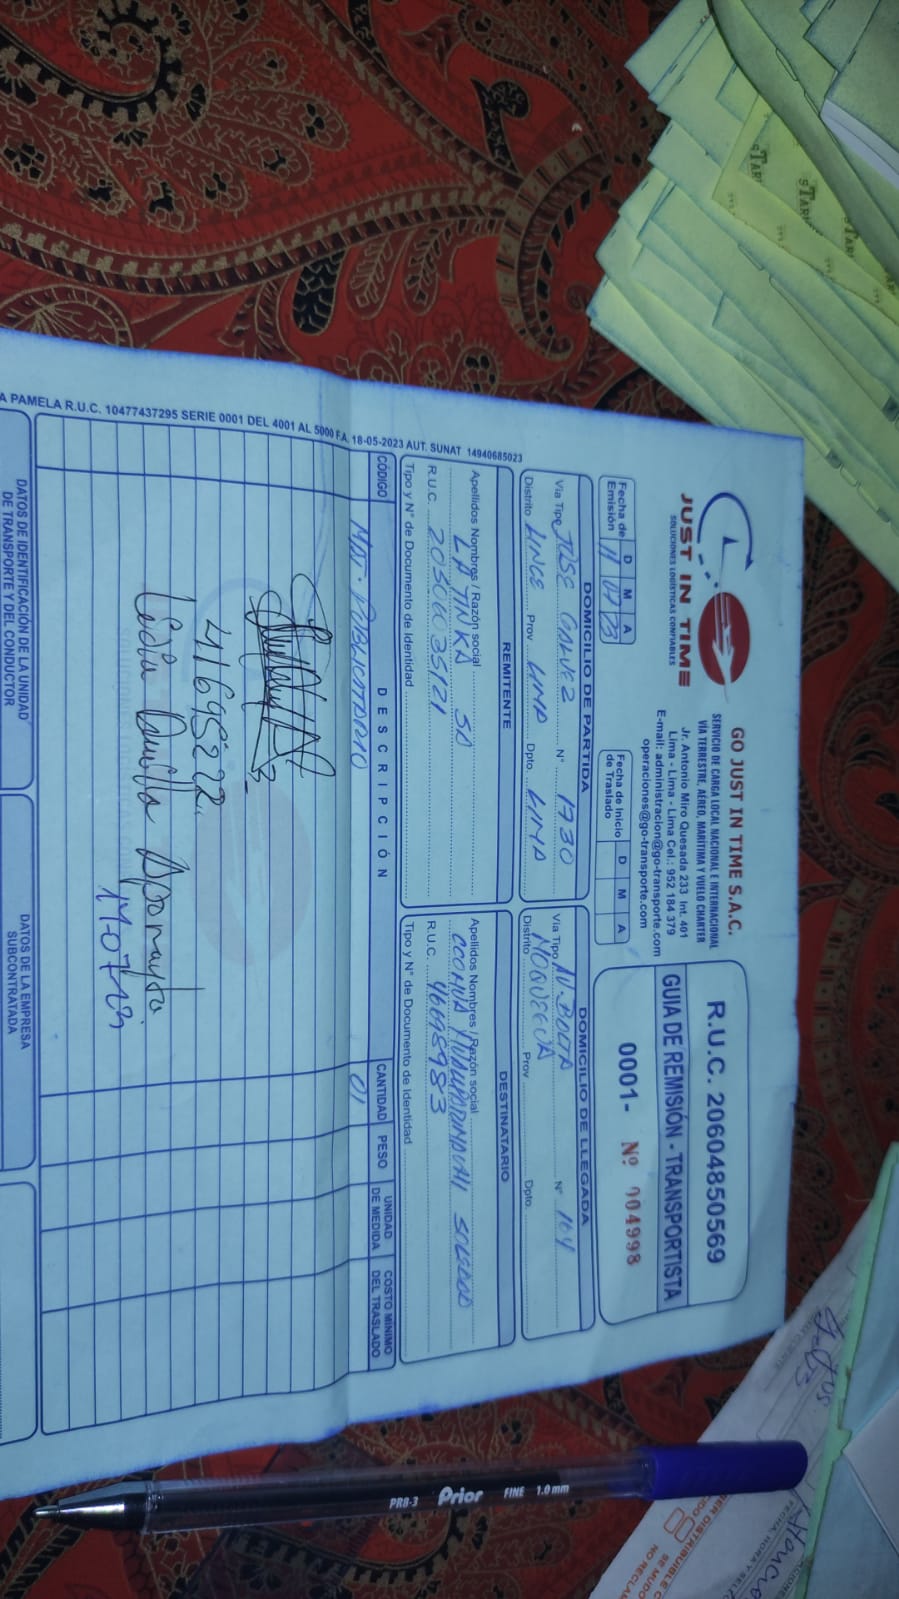 JUST IN TIME
SOLUCIONES LOGÍSTICAS CONFIABLES
GO JUST IN TIME S.A.C.
SERVICIO DE CARGA LOCAL NACIONAL E INTERNACIONAL
VÍA TERRESTRE, AÉREO, MARÍTIMA Y VUELO CHARTER
Jr. Antonio Miro Quesada 233 Int. 401
Lima - Lima - Lima Cel.: 952 184 379
E-mail: administracion@go-transporte.com
operaciones@go-transporte.com
R.U.C. 20604850569
GUIA DE REMISIÓN - TRANSPORTISTA
0001- Nº 004998
Fecha de Emisión D M A
11 07 23
Fecha de Inicio de Traslado D M A
DOMICILIO DE PARTIDA
Vía Tipo JOSE GALVEZ N° 1730
Distrito LINCE Prov LIMA Dpto. LIMA
DOMICILIO DE LLEGADA
Vía Tipo AV. BOLTA N° 104
Distrito MOQUEGUA Prov Dpto.
REMITENTE
Apellidos Nombres / Razón social
LA TINKA SA
R.U.C. 20506035121
Tipo y N° de Documento de Identidad
DESTINATARIO
Apellidos Nombres / Razón social
CCOHUA SOLEDAD
R.U.C. 46698983
Tipo y N° de Documento de Identidad
CÓDIGO DESCRIPCIÓN CANTIDAD PESO UNIDAD DE MEDIDA COSTO MÍNIMO DEL TRASLADO
MAT. PUBLICITARIO 01
41695222
17-07-23
DATOS DE IDENTIFICACIÓN DE LA UNIDAD DE TRANSPORTE Y DEL CONDUCTOR
DATOS DE LA EMPRESA SUBCONTRATADA
A PAMELA R.U.C. 10477437295 SERIE 0001 DEL 4001 AL 5000 F.A. 18-05-2023 AUT. SUNAT 14940685023
PRB-3 Prior FINE 1.0 mm